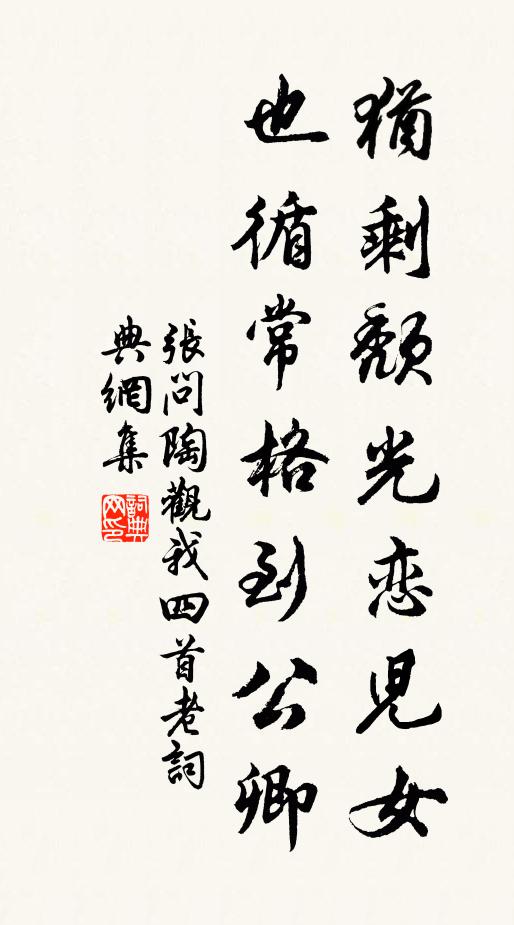 猶剩頹光恋児女
也循常格到公卿
張問陶觀我四首老詞
典網集
詞典网印